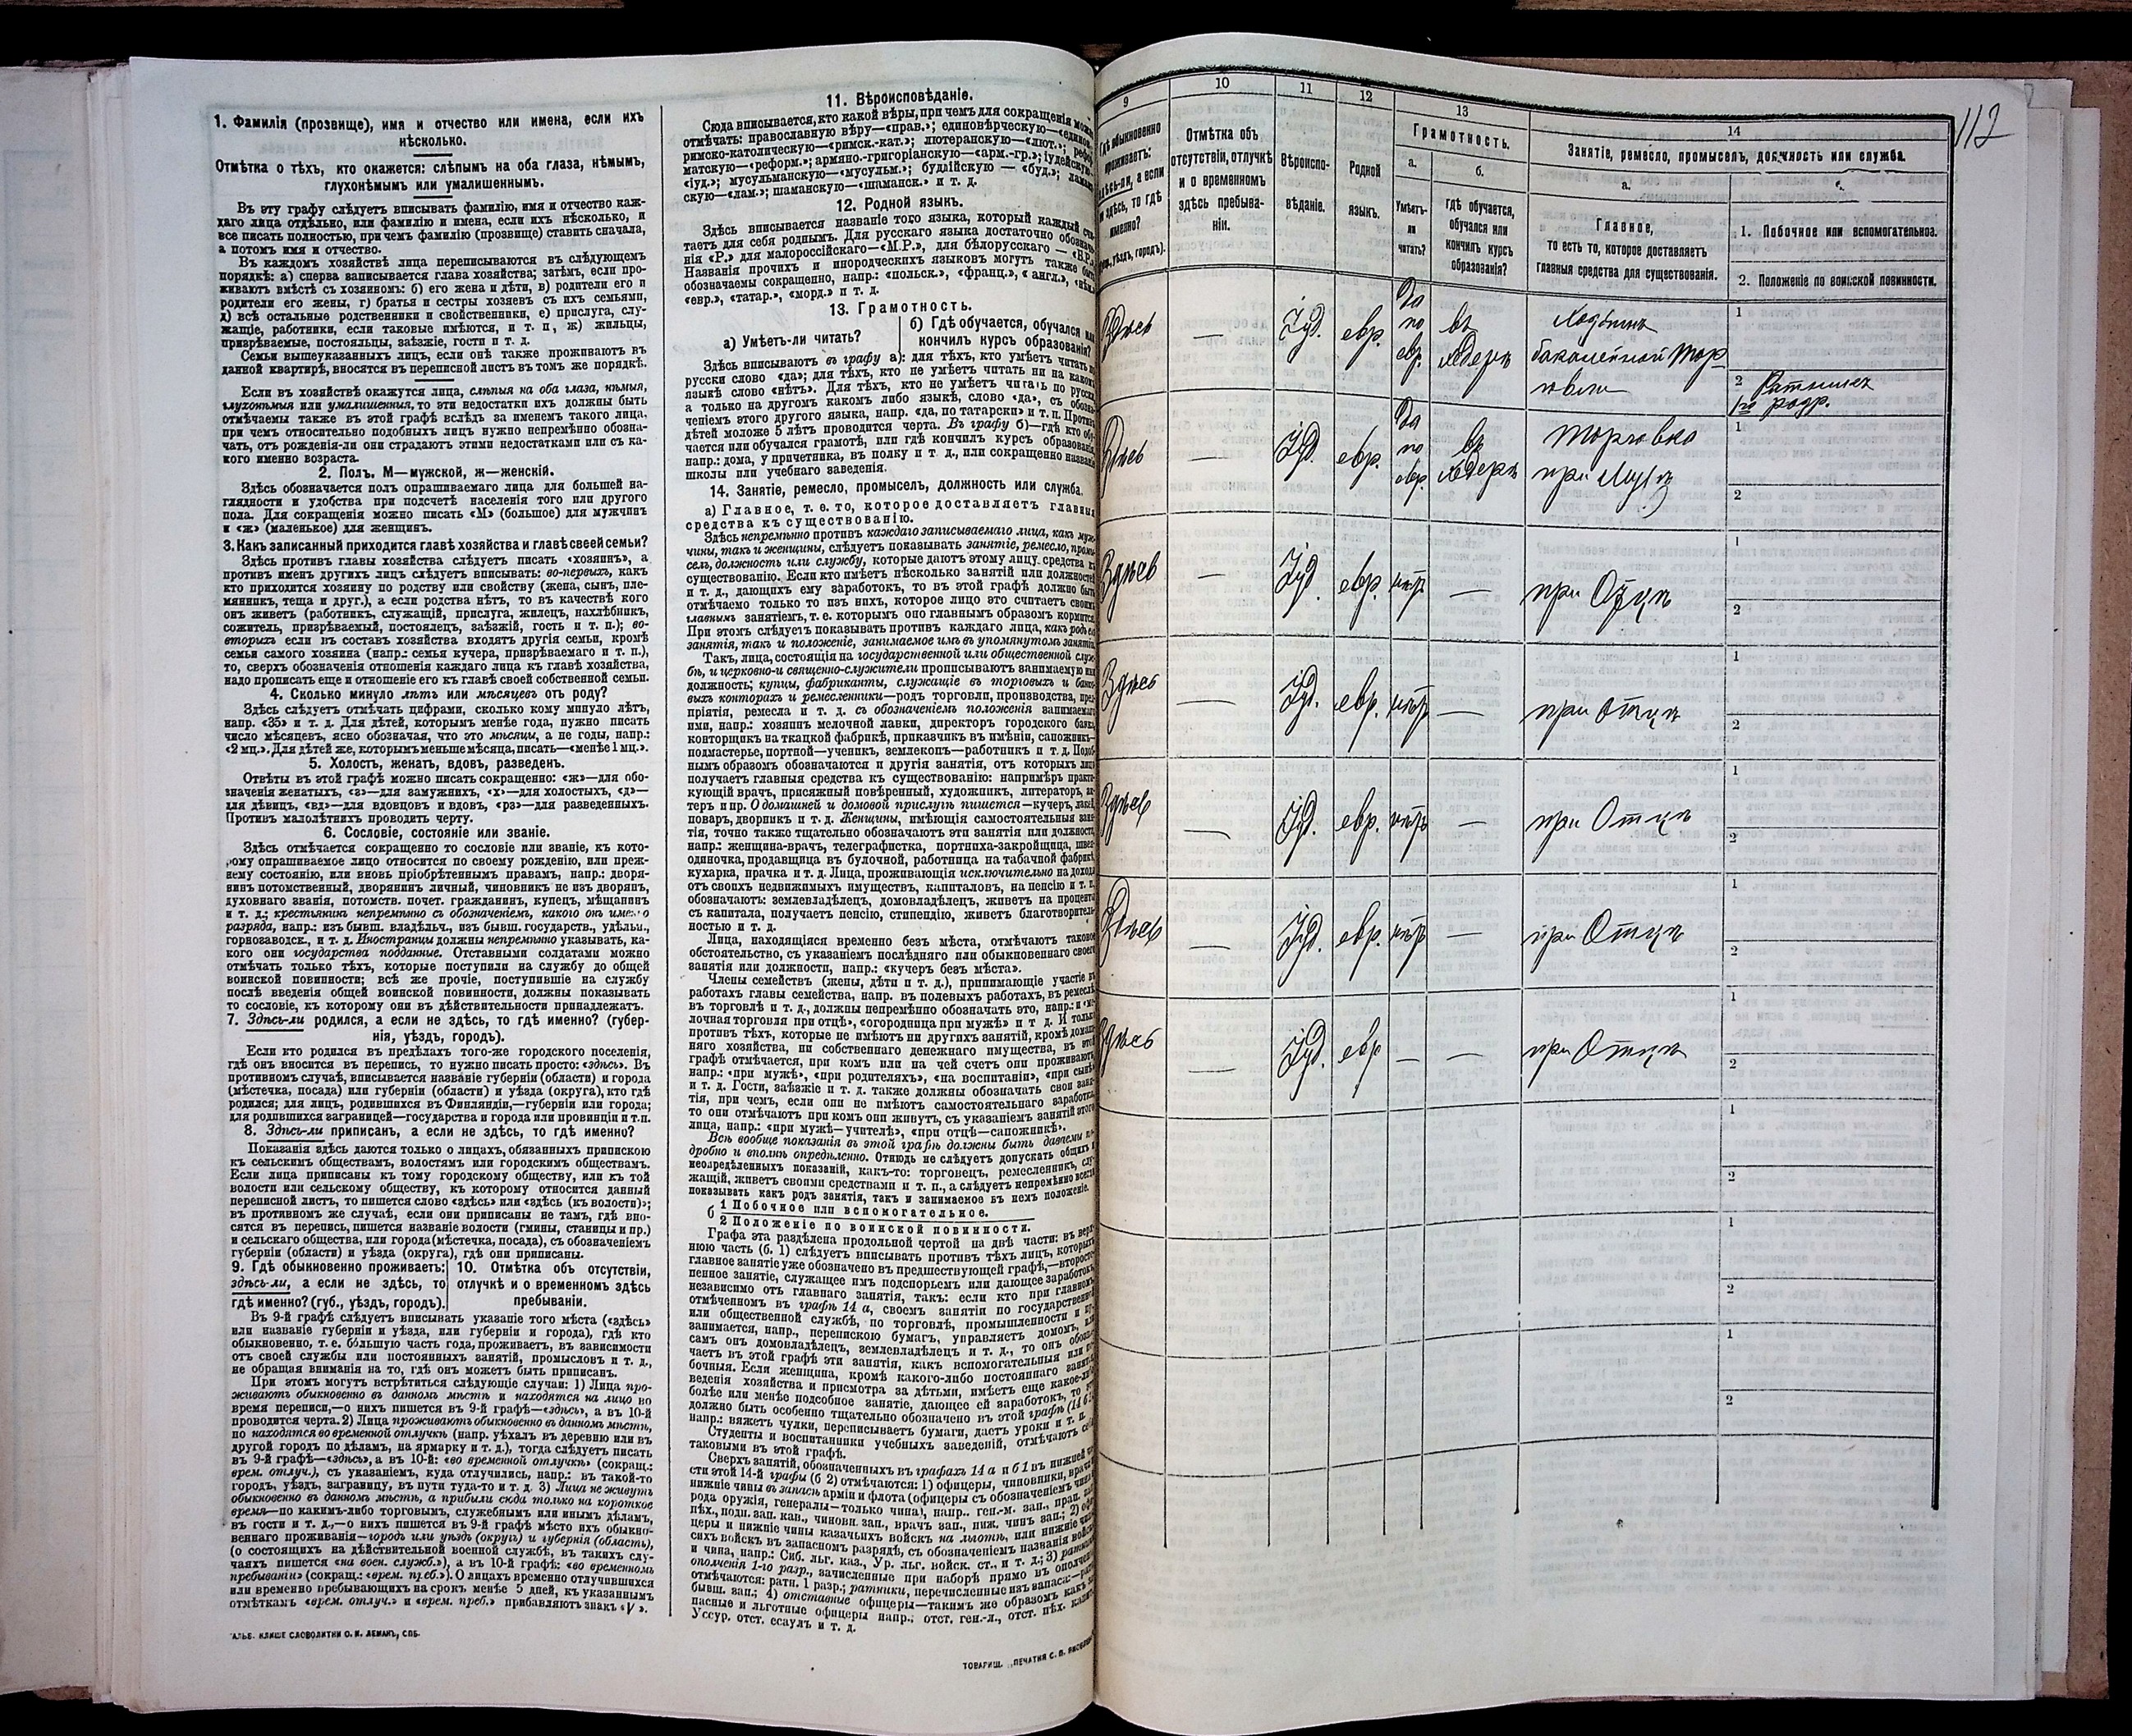 1. Фамилія (прозвище), имя и отчество или имена, если ихъ
нѣсколько.
Отмѣтка о тѣхъ, кто окажется: слѣпымъ на оба глаза, нѣмымъ,
глухонѣмымъ или умалишеннымъ.
Въ эту графу слѣдуетъ вписывать фамилію, имя и отчество каж-
даго лица отдѣльно, или фамилію и имена, если ихъ нѣсколько, и
все писать полностью, при чемъ фамилію (прозвище) ставить сначала,
а потомъ имя и отчество.
Въ каждомъ хозяйствѣ лица переписываются въ слѣдующемъ
порядкѣ: а) сперва записывается глава хозяйства; затѣмъ, если про-
живаютъ вмѣстѣ съ хозяиномъ: б) его жена и дѣти, в) родители его и
родители его жены, г) братья и сестры хозяевъ съ ихъ семьями,
д) всѣ остальные родственники и свойственники, е) прислуга, слу-
жащіе, работники, если таковые имѣются, и т. п, ж) жильцы,
призрѣваемые, постояльцы, заѣзжіе, гости и т. д.
Семьи вышеуказанныхъ лицъ, если онѣ также проживаютъ въ
данной квартирѣ, вносятся въ переписной листъ въ томъ же порядкѣ.
Если въ хозяйствѣ окажутся лица, слѣпыя на оба глаза, нѣмыя,
глухонѣмыя или умалишенныя, то эти недостатки ихъ должны быть
отмѣчаемы также въ этой графѣ вслѣдъ за именемъ такого лица,
при чемъ относительно подобныхъ лицъ нужно непремѣнно обозна-
чать, отъ рожденія-ли они страдаютъ этими недостатками или съ ка-
кого именно возраста.
2. Полъ. М—мужской, ж—женскій.
Здѣсь обозначается полъ опрашиваемаго лица для большей на-
глядности и удобства при подсчетѣ населенія того или другого
пола. Для сокращенія можно писать «М» (большое) для мужчинъ
и «ж» (маленькое) для женщинъ.
3. Какъ записанный приходится главѣ хозяйства и главѣ своей семьи?
Здѣсь противъ главы хозяйства слѣдуетъ писать «хозяинъ», а
противъ именъ другихъ лицъ слѣдуетъ вписывать: во-первыхъ, какъ
кто приходится хозяину по родству или свойству (жена, сынъ, пле-
мянникъ, теща и друг.), а если родства нѣтъ, то въ качествѣ кого
онъ живетъ (работникъ, служащій, прислуга, жилецъ, нахлѣбникъ,
сожитель, призрѣваемый, постоялецъ, заѣзжій, гость и т. п.); во-
вторыхъ если въ составъ хозяйства входятъ другія семьи, кромѣ
семьи самого хозяина (напр.: семья кучера, призрѣваемаго и т. п.),
то, сверхъ обозначенія отношенія каждаго лица къ главѣ хозяйства,
надо прописать еще и отношеніе его къ главѣ своей собственной семьи.
4. Сколько минуло лѣтъ или мѣсяцевъ отъ роду?
Здѣсь слѣдуетъ отмѣчать цифрами, сколько кому минуло лѣтъ,
напр. «35» и т. д. Для дѣтей, которымъ менѣе года, нужно писать
число мѣсяцевъ, ясно обозначая, что это мѣсяцы, а не годы, напр.:
«2 мц.». Для дѣтей же, которымъ меньше мѣсяца, писать—«менѣе 1 мц.».
5. Холостъ, женатъ, вдовъ, разведенъ.
Отвѣты въ этой графѣ можно писать сокращенно: «ж»—для обо-
значенія женатыхъ, «з»—для замужнихъ, «х»—для холостыхъ, «д»—
для дѣвицъ, «вд»—для вдовцовъ и вдовъ, «рз»—для разведенныхъ.
Противъ малолѣтнихъ проводить черту.
6. Сословіе, состояніе или званіе.
Здѣсь отмѣчается сокращенно то сословіе или званіе, къ кото-
рому опрашиваемое лицо относится по своему рожденію, или преж-
нему состоянію, или вновь пріобрѣтеннымъ правамъ, напр.: дворя-
нинъ потомственный, дворянинъ личный, чиновникъ не изъ дворянъ,
духовнаго званія, потомств. почет. гражданинъ, купецъ, мѣщанинъ
и т. д.; крестьянинъ непремѣнно съ обозначеніемъ, какого онъ имено
разряда, напр.: изъ бывш. владѣльч., изъ бывш. государств., удѣльн.,
горнозаводск., и т. д. Иностранцы должны непремѣнно указывать, ка-
кого они государства подданные. Отставными солдатами можно
отмѣчать только тѣхъ, которые поступили на службу до общей
воинской повинности; всѣ же прочіе, поступившіе на службу
послѣ введенія общей воинской повинности, должны показывать
то сословіе, къ которому они въ дѣйствительности принадлежатъ.
7. Здѣсь-ли родился, а если не здѣсь, то гдѣ именно? (губер-
нія, уѣздъ, городъ).
Если кто родился въ предѣлахъ того-же городского поселенія,
гдѣ онъ вносится въ перепись, то нужно писать просто: «здѣсь». Въ
противномъ случаѣ, вписывается названіе губерніи (области) и города
(мѣстечка, посада) или губерніи (области) и уѣзда (округа), кто гдѣ
родился; для лицъ, родившихся въ Финляндіи,—губерніи или города;
для родившихся заграницей—государства и города или провинціи и т.п.
8. Здѣсь-ли приписанъ, а если не здѣсь, то гдѣ именно?
Показанія здѣсь даются только о лицахъ, обязанныхъ припискою
къ сельскимъ обществамъ, волостямъ или городскимъ обществамъ.
Если лица приписаны къ тому городскому обществу, или къ той
волости или сельскому обществу, къ которому относится данный
переписной листъ, то пишется слово «здѣсь» или «здѣсь (къ волости)»;
въ противномъ же случаѣ, если они приписаны не тамъ, гдѣ вно-
сятся въ перепись, пишется названіе волости (гмины, станицы и пр.)
и сельскаго общества, или города (мѣстечка, посада), съ обозначеніемъ
губерніи (области) и уѣзда (округа), гдѣ они приписаны.
9. Гдѣ обыкновенно проживаетъ:
здѣсь-ли, а если не здѣсь, то
гдѣ именно? (губ., уѣздъ, городъ).
10. Отмѣтка объ отсутствіи,
отлучкѣ и о временномъ здѣсь
пребываніи.
Въ 9-й графѣ слѣдуетъ вписывать указаніе того мѣста («здѣсь»
или названіе губерніи и уѣзда, или губерніи и города), гдѣ кто
обыкновенно, т. е. бо́льшую часть года, проживаетъ, въ зависимости
отъ своей службы или постоянныхъ занятій, промысловъ и т. д.,
не обращая вниманія на то, гдѣ онъ можетъ быть приписанъ.
При этомъ могутъ встрѣтиться слѣдующіе случаи: 1) Лица про-
живаютъ обыкновенно въ данномъ мѣстѣ и находятся на лицо во
время переписи,—о нихъ пишется въ 9-й графѣ—«здѣсь», а въ 10-й
проводится черта. 2) Лица проживаютъ обыкновенно въ данномъ мѣстѣ,
но находятся во временной отлучкѣ (напр. уѣхалъ въ деревню или въ
другой городъ по дѣламъ, на ярмарку и т. д.), тогда слѣдуетъ писать
въ 9-й графѣ—«здѣсь», а въ 10-й: «во временной отлучкѣ» (сокращ.:
врем. отлуч.), съ указаніемъ, куда отлучились, напр.: въ такой-то
городъ, уѣздъ, заграницу, въ пути туда-то и т. д. 3) Лица не живутъ
обыкновенно въ данномъ мѣстѣ, а прибыли сюда только на короткое
время—по какимъ-либо торговымъ, служебнымъ или инымъ дѣламъ,
въ гости и т. д.,—о нихъ пишется въ 9-й графѣ мѣсто ихъ обыкно-
веннаго проживанія—городъ или уѣздъ (округъ) и губернія (область),
(о состоящихъ на дѣйствительной военной службѣ, въ такихъ слу-
чаяхъ пишется «на воен. служб.»), а въ 10-й графѣ: «во временномъ
пребываніи» (сокращ.: «врем. преб.»). О лицахъ временно отлучившихся
или временно пребывающихъ на срокъ менѣе 5 дней, къ указаннымъ
отмѣткамъ «врем. отлуч.» и «врем. преб.» прибавляютъ знакъ «V».
КЛИШЕ СЛОВОЛИТНИ О. И. ЛЕМАНЪ, СПБ.
11. Вѣроисповѣданіе.
Сюда вписывается, кто какой вѣры, при чемъ для сокращенія
отмѣчать: православную вѣру—«прав.»; единовѣрческую—
римско-католическую—«римск.-кат.»; лютеранскую—«лют.»;
матскую—«реформ.»; армяно.-григоріанскую—«арм.-гр.»;
«іуд.»; мусульманскую—«мусульм.»; буддійскую — «буд.»;
скую—«лам.»; шаманскую—«шаманск.» и т. д.
12. Родной языкъ.
Здѣсь вписывается названіе того языка, который каждый
таетъ для себя роднымъ. Для русскаго языка достаточно
нія «Р.» для малороссійскаго—«М.Р.», для бѣлорусскаго —«Б.Р.»
Названія прочихъ и инородческихъ языковъ могутъ также
обозначаемы сокращенно, напр.: «польск.», «франц.», «англ.»,
«евр.», «татар.», «морд.» и т. д.
13. Грамотность.
а) Умѣетъ-ли читать?
б) Гдѣ обучается, обучался или
кончилъ курсъ образованія?
Здѣсь вписываютъ въ графу а): для тѣхъ, кто умѣетъ читать
русски слово «да»; для тѣхъ, кто не умѣетъ читать ни на какомъ
языкѣ слово «нѣтъ». Для тѣхъ, кто не умѣетъ читать по русски,
а только на другомъ какомъ либо языкѣ, слово «да», съ
ченіемъ этого другого языка, напр. «да, по татарски» и т. п. Противъ
дѣтей моложе 5 лѣтъ проводится черта. Въ графу б)—гдѣ кто
чается или обучался грамотѣ, или гдѣ кончилъ курсъ образованія
напр.: дома, у причетника, въ полку и т. д., или сокращенно названіе
школы или учебнаго заведенія.
14. Занятіе, ремесло, промыселъ, должность или служба.
а) Главное, т. е. то, которое доставляетъ главныя
средства къ существованію.
Здѣсь непремѣнно противъ каждаго записываемаго лица, какъ муж-
чины, такъ и женщины, слѣдуетъ показывать занятіе, ремесло,
селъ, должность или службу, которые даютъ этому лицу средства къ
существованію. Если кто имѣетъ нѣсколько занятій или должностей
и т. д., дающихъ ему заработокъ, то въ этой графѣ должно быть
отмѣчаемо только то изъ нихъ, которое лицо это считаетъ своимъ
главнымъ занятіемъ, т. е. которымъ оно главнымъ образомъ кормится.
При этомъ слѣдуетъ показывать противъ каждаго лица, какъ родъ его
занятія, такъ и положеніе, занимаемое имъ въ упомянутомъ занятіи.
Такъ, лица, состоящія на государственной или общественной служ-
бѣ, и церковно-и священно-служители прописываютъ занимаемую ими
должность; купцы, фабриканты, служащіе въ торговыхъ и банко-
выхъ конторахъ и ремесленники—родъ торговли, производства, пред-
пріятія, ремесла и т. д. съ обозначеніемъ положенія занимаемаго
ими, напр.: хозяинъ мелочной лавки, директоръ городского банка,
конторщикъ на ткацкой фабрикѣ, приказчикъ въ имѣніи, сапожникъ—
подмастерье, портной—ученикъ, землекопъ—работникъ и т. д. Подоб-
нымъ образомъ обозначаются и другія занятія, отъ которыхъ лицо
получаетъ главныя средства къ существованію: напримѣръ практи-
кующій врачъ, присяжный повѣренный, художникъ, литераторъ, ак-
теръ и пр. О домашней и домовой прислугѣ пишется—кучеръ, лакей,
поваръ, дворникъ и т. д. Женщины, имѣющія самостоятельныя заня-
тія, точно также тщательно обозначаютъ эти занятія или должности,
напр.: женщина-врачъ, телеграфистка, портниха-закройщица, швея-
одиночка, продавщица въ булочной, работница на табачной фабрикѣ,
кухарка, прачка и т. д. Лица, проживающія исключительно на доходы
отъ своихъ недвижимыхъ имуществъ, капиталовъ, на пенсію и т. п.
обозначаютъ: землевладѣлецъ, домовладѣлецъ, живетъ на проценты
съ капитала, получаетъ пенсію, стипендію, живетъ благотворитель-
ностью и т. д.
Лица, находящіяся временно безъ мѣста, отмѣчаютъ таковое
обстоятельство, съ указаніемъ послѣдняго или обыкновеннаго своего
занятія или должности, напр.: «кучеръ безъ мѣста».
Члены семействъ (жены, дѣти и т. д.), принимающіе участіе въ
работахъ главы семейства, напр. въ полевыхъ работахъ, въ ремеслѣ,
въ торговлѣ и т. д., должны непремѣнно обозначать это, напр.: и «ме-
лочная торговля при отцѣ», «огородница при мужѣ» и т д. И только
противъ тѣхъ, которые не имѣютъ ни другихъ занятій, кромѣ домаш-
няго хозяйства, ни собственнаго денежнаго имущества, въ этой
графѣ отмѣчается, при комъ или на чей счетъ они проживаютъ,
напр.: «при мужѣ», «при родителяхъ», «на воспитаніи», «при сынѣ»
и т. д. Гости, заѣзжіе и т. д. также должны обозначать свои заня-
тія, при чемъ, если они не имѣютъ самостоятельнаго заработка,
то они отмѣчаютъ при комъ они живутъ, съ указаніемъ занятій этого
лица, напр.: «при мужѣ—учителѣ», «при отцѣ—сапожникѣ».
Всѣ вообще показанія въ этой графѣ должны быть даваемы по-
дробно и вполнѣ опредѣленно. Отнюдь не слѣдуетъ допускать общихъ и
неопредѣленныхъ показаній, какъ-то: торговецъ, ремесленникъ, слу-
жащій, живетъ своими средствами и т. п., а слѣдуетъ непремѣнно всегда
показывать какъ родъ занятія, такъ и занимаемое въ немъ положеніе.
б 1 Побочное или вспомогательное.
2 Положеніе по воинской повинности.
Графа эта раздѣлена продольной чертой на двѣ части: въ верх-
нюю часть (б. 1) слѣдуетъ вписывать противъ тѣхъ лицъ, которыхъ
главное занятіе уже обозначено въ предшествующей графѣ,—второсте-
пенное занятіе, служащее имъ подспорьемъ или дающее заработокъ,
независимо отъ главнаго занятія, такъ: если кто при главномъ,
отмѣченномъ въ графѣ 14 а, своемъ занятіи по государственной
или общественной службѣ, по торговлѣ, промышленности и пр.
занимается, напр., перепискою бумагъ, управляетъ домомъ, или
самъ онъ домовладѣлецъ, землевладѣлецъ и т. д., то онъ обозна-
чаетъ въ этой графѣ эти занятія, какъ вспомогательныя или по-
бочныя. Если женщина, кромѣ какого-либо постояннаго занятія
веденія хозяйства и присмотра за дѣтьми, имѣетъ еще какое-либо
болѣе или менѣе подсобное занятіе, дающее ей заработокъ, то
должно быть особенно тщательно обозначено въ этой графѣ (14 б 1)
напр.: вяжетъ чулки, переписываетъ бумаги, даетъ уроки и т. п.
Студенты и воспитанники учебныхъ заведеній, отмѣчаютъ себя
таковыми въ этой графѣ.
Сверхъ занятій, обозначенныхъ въ графахъ 14 а и б 1 въ нижней ча-
сти этой 14-й графы (б 2) отмѣчаются: 1) офицеры, чиновники, врачи
нижніе чины въ запасѣ арміи и флота (офицеры съ обозначеніемъ чина
рода оружія, генералы—только чина), напр.. ген.-м. зап., прап. зап.
пѣх., подп. зап. кав., чиновн. зап., врачъ зап., ниж. чинъ зап.; 2)
церы и нижніе чины казачьихъ войскъ на льготѣ, или нижніе чины
сихъ войскъ въ запасномъ разрядѣ, съ обозначеніемъ названія войска
и чина, напр.: Сиб. льг. каз., Ур. льг. войск. ст., и т. д.; 3) ратники
ополченія 1-го разр., зачисленные при наборѣ прямо въ ополченіе
отмѣчаются: ратн. 1 разр.; ратники, перечисленные изъ запаса:—
бывш. зап.; 4) отставные офицеры—такимъ же образомъ какъ за-
пасные и льготные офицеры напр.: отст. ген.-л., отст. пѣх.
Уссур. отст. есаулъ и т. д.
ТОВАРИЩ. „ПЕЧАТНЯ С. П. ЯКОВЛЕВА
112
9
10
11
12
13
14
Гдѣ обыкновенно
проживаетъ:
здѣсь-ли, а если
не здѣсь, то гдѣ
именно?
уѣздъ, городъ).
Отмѣтка объ
отсутствіи, отлучкѣ
и о временномъ
здѣсь пребыва-
ніи.
Вѣроиспо-
вѣданіе.
Родной
языкъ.
Грамотность.
а.
Умѣетъ-
ли
читать?
б.
гдѣ обучается,
обучался или
кончилъ курсъ
образованія?
Занятіе, ремесло, промыселъ, должность или служба.
а.
Главное,
то есть то, которое доставляетъ
главныя средства для существованія.
1. Побочное или вспомогательное.
2. Положеніе по воинской повинности.
Здѣсь — Іуд. евр. Да по евр. въ хедерѣ
Хозяинъ
бакалейной тор
говли
1
2 Ратникъ
разр.
Здѣсь — Іуд. евр. Да по евр. въ хедерѣ
торговка
при Мужѣ
1
2
Здѣсь — Іуд. евр. нѣтъ — при Отцѣ
1
2
Здѣсь — Іуд. евр. нѣтъ — при Отцѣ
1
2
Здѣсь — Іуд. евр. нѣтъ — при Отцѣ
1
2
Здѣсь — Іуд. евр. нѣтъ — при Отцѣ
1
2
Здѣсь — Іуд. евр — — при Отцѣ
1
2
1
2
1
2
1
2